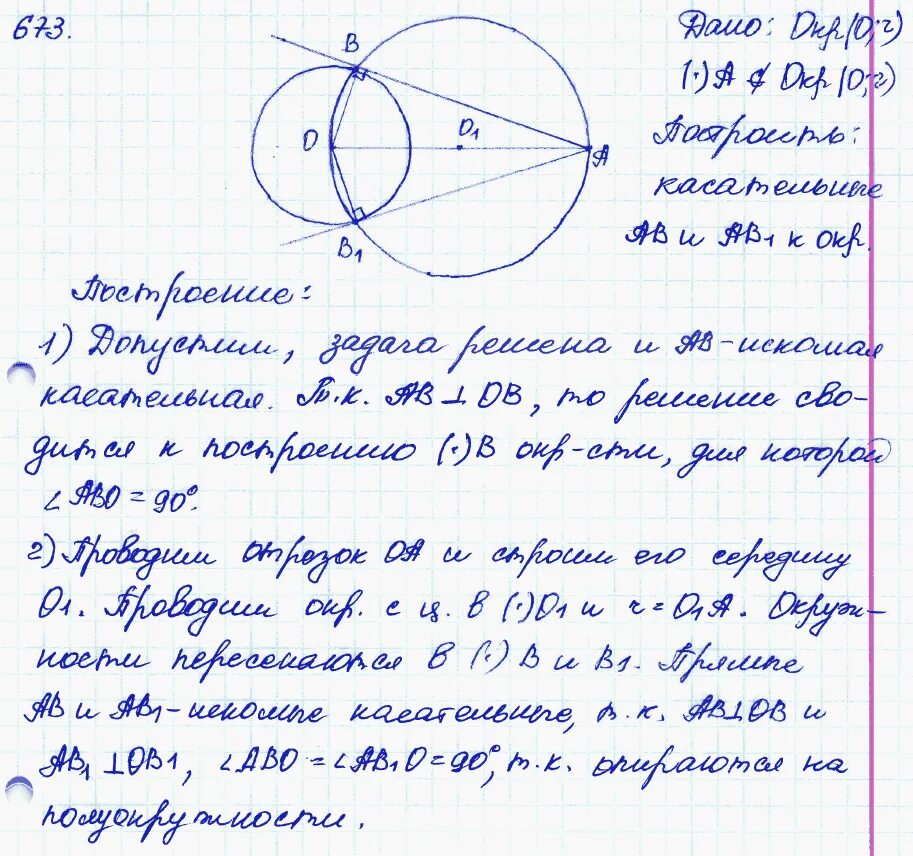 673.
Дано: Окр(O; r)
(·) A ∉ Окр(O; r)
Построить:
касательные
AB и AB1 к окр.
B
O
O1
A
B1
Построение:
1) Допустим, задача решена и AB - искомая
касательная. Т.к. AB ⊥ OB, то решение сво-
дится к построению (·) B окр-сти, для которой
∠ABO = 90°.
2) Проводим отрезок OA и строим его середину
O1. Проводим окр. с ц. в (·) O1 и r = O1A. Окруж-
ности пересекаются в (·) B и B1. Прямые
AB и AB1 - искомые касательные, т.к. AB ⊥ OB и
AB1 ⊥ OB1, ∠ABO = ∠AB1O = 90°, т.к. опираются на
полуокружности.